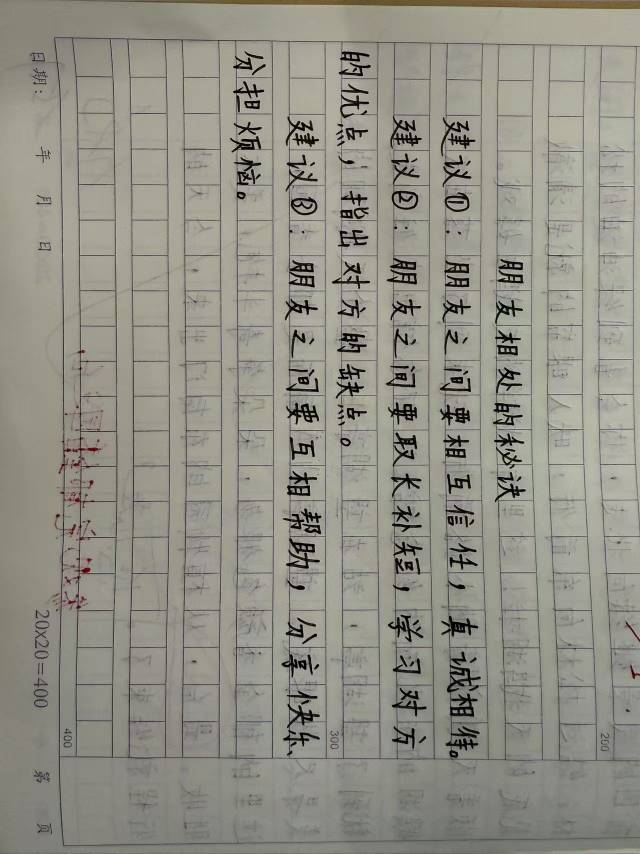 朋友相处的秘诀
建议①：朋友之间要相互信任，真诚相待。
建议②：朋友之间要取长补短，学习对方
的优点，指出对方的缺点。
建议③：朋友之间要互相帮助，分享快乐
分担烦恼。
200
300
400
日期： 年 月 日 20×20=400 第 页